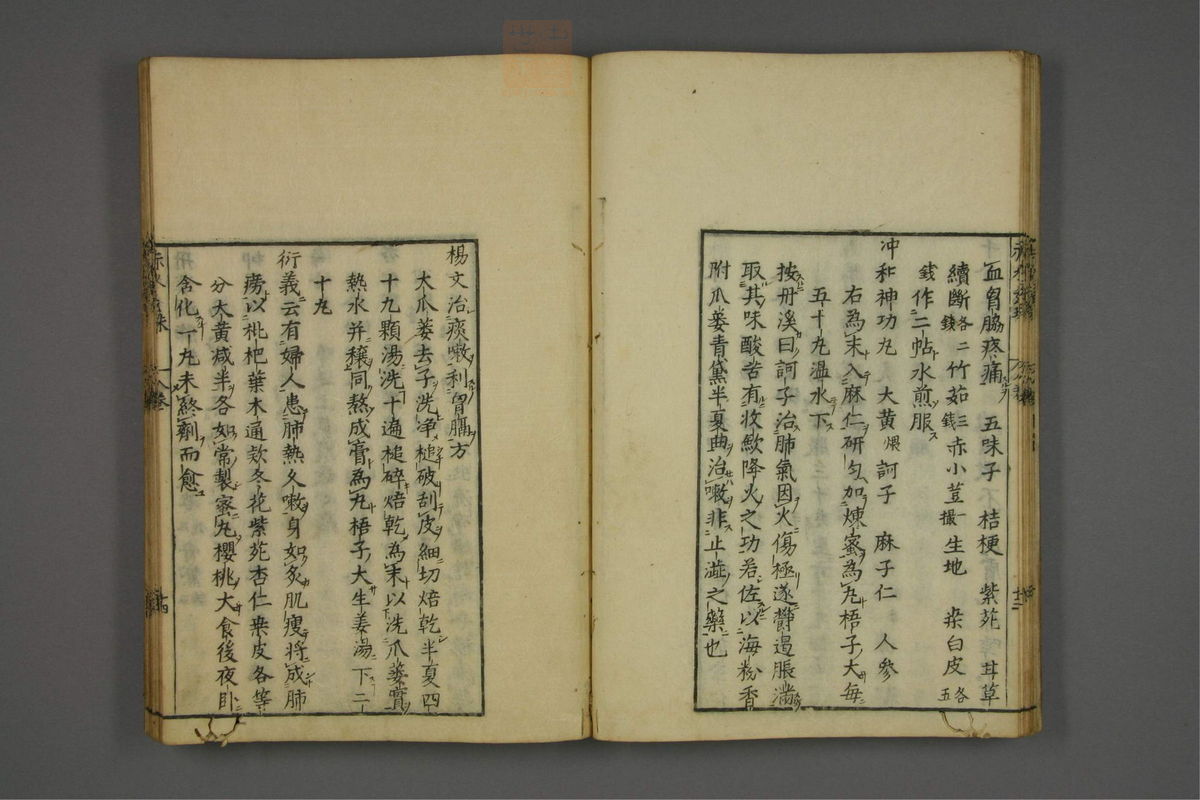 血胷脇疼痛　五味子　桔梗　紫苑　甘草
續斷各二錢竹茹三錢赤小荳一撮生地　桒白皮各五
錢作二帖水煎服
冲和神功丸　大黃煨訶子　麻子仁　人參
右為末入麻仁研勻加煉蜜為丸梧子大每
五十丸温水下
按丹溪曰訶子治肺氣因火傷極遂鬱遏脹滿
取其味酸苦有收歛降火之功若佐以海粉香
附瓜蔞青黛半夏曲治嗽非止澁之藥也
楊文治痰嗽利胷膈方
大瓜蔞去子洗净槌破刮皮細切焙乾半夏四
十九顆湯洗十遍槌碎焙乾為末以洗瓜蔞
熱水并穰同熬成膏為丸梧子大生姜湯下二
十丸
衍義云有婦人患肺熱久嗽身如炙肌瘦將成肺
癆以枇杷葉木通欵冬花紫苑杏仁桒皮各等
分大黃减半各如常製蜜丸櫻桃大食後夜卧
含化一丸未終劑而愈